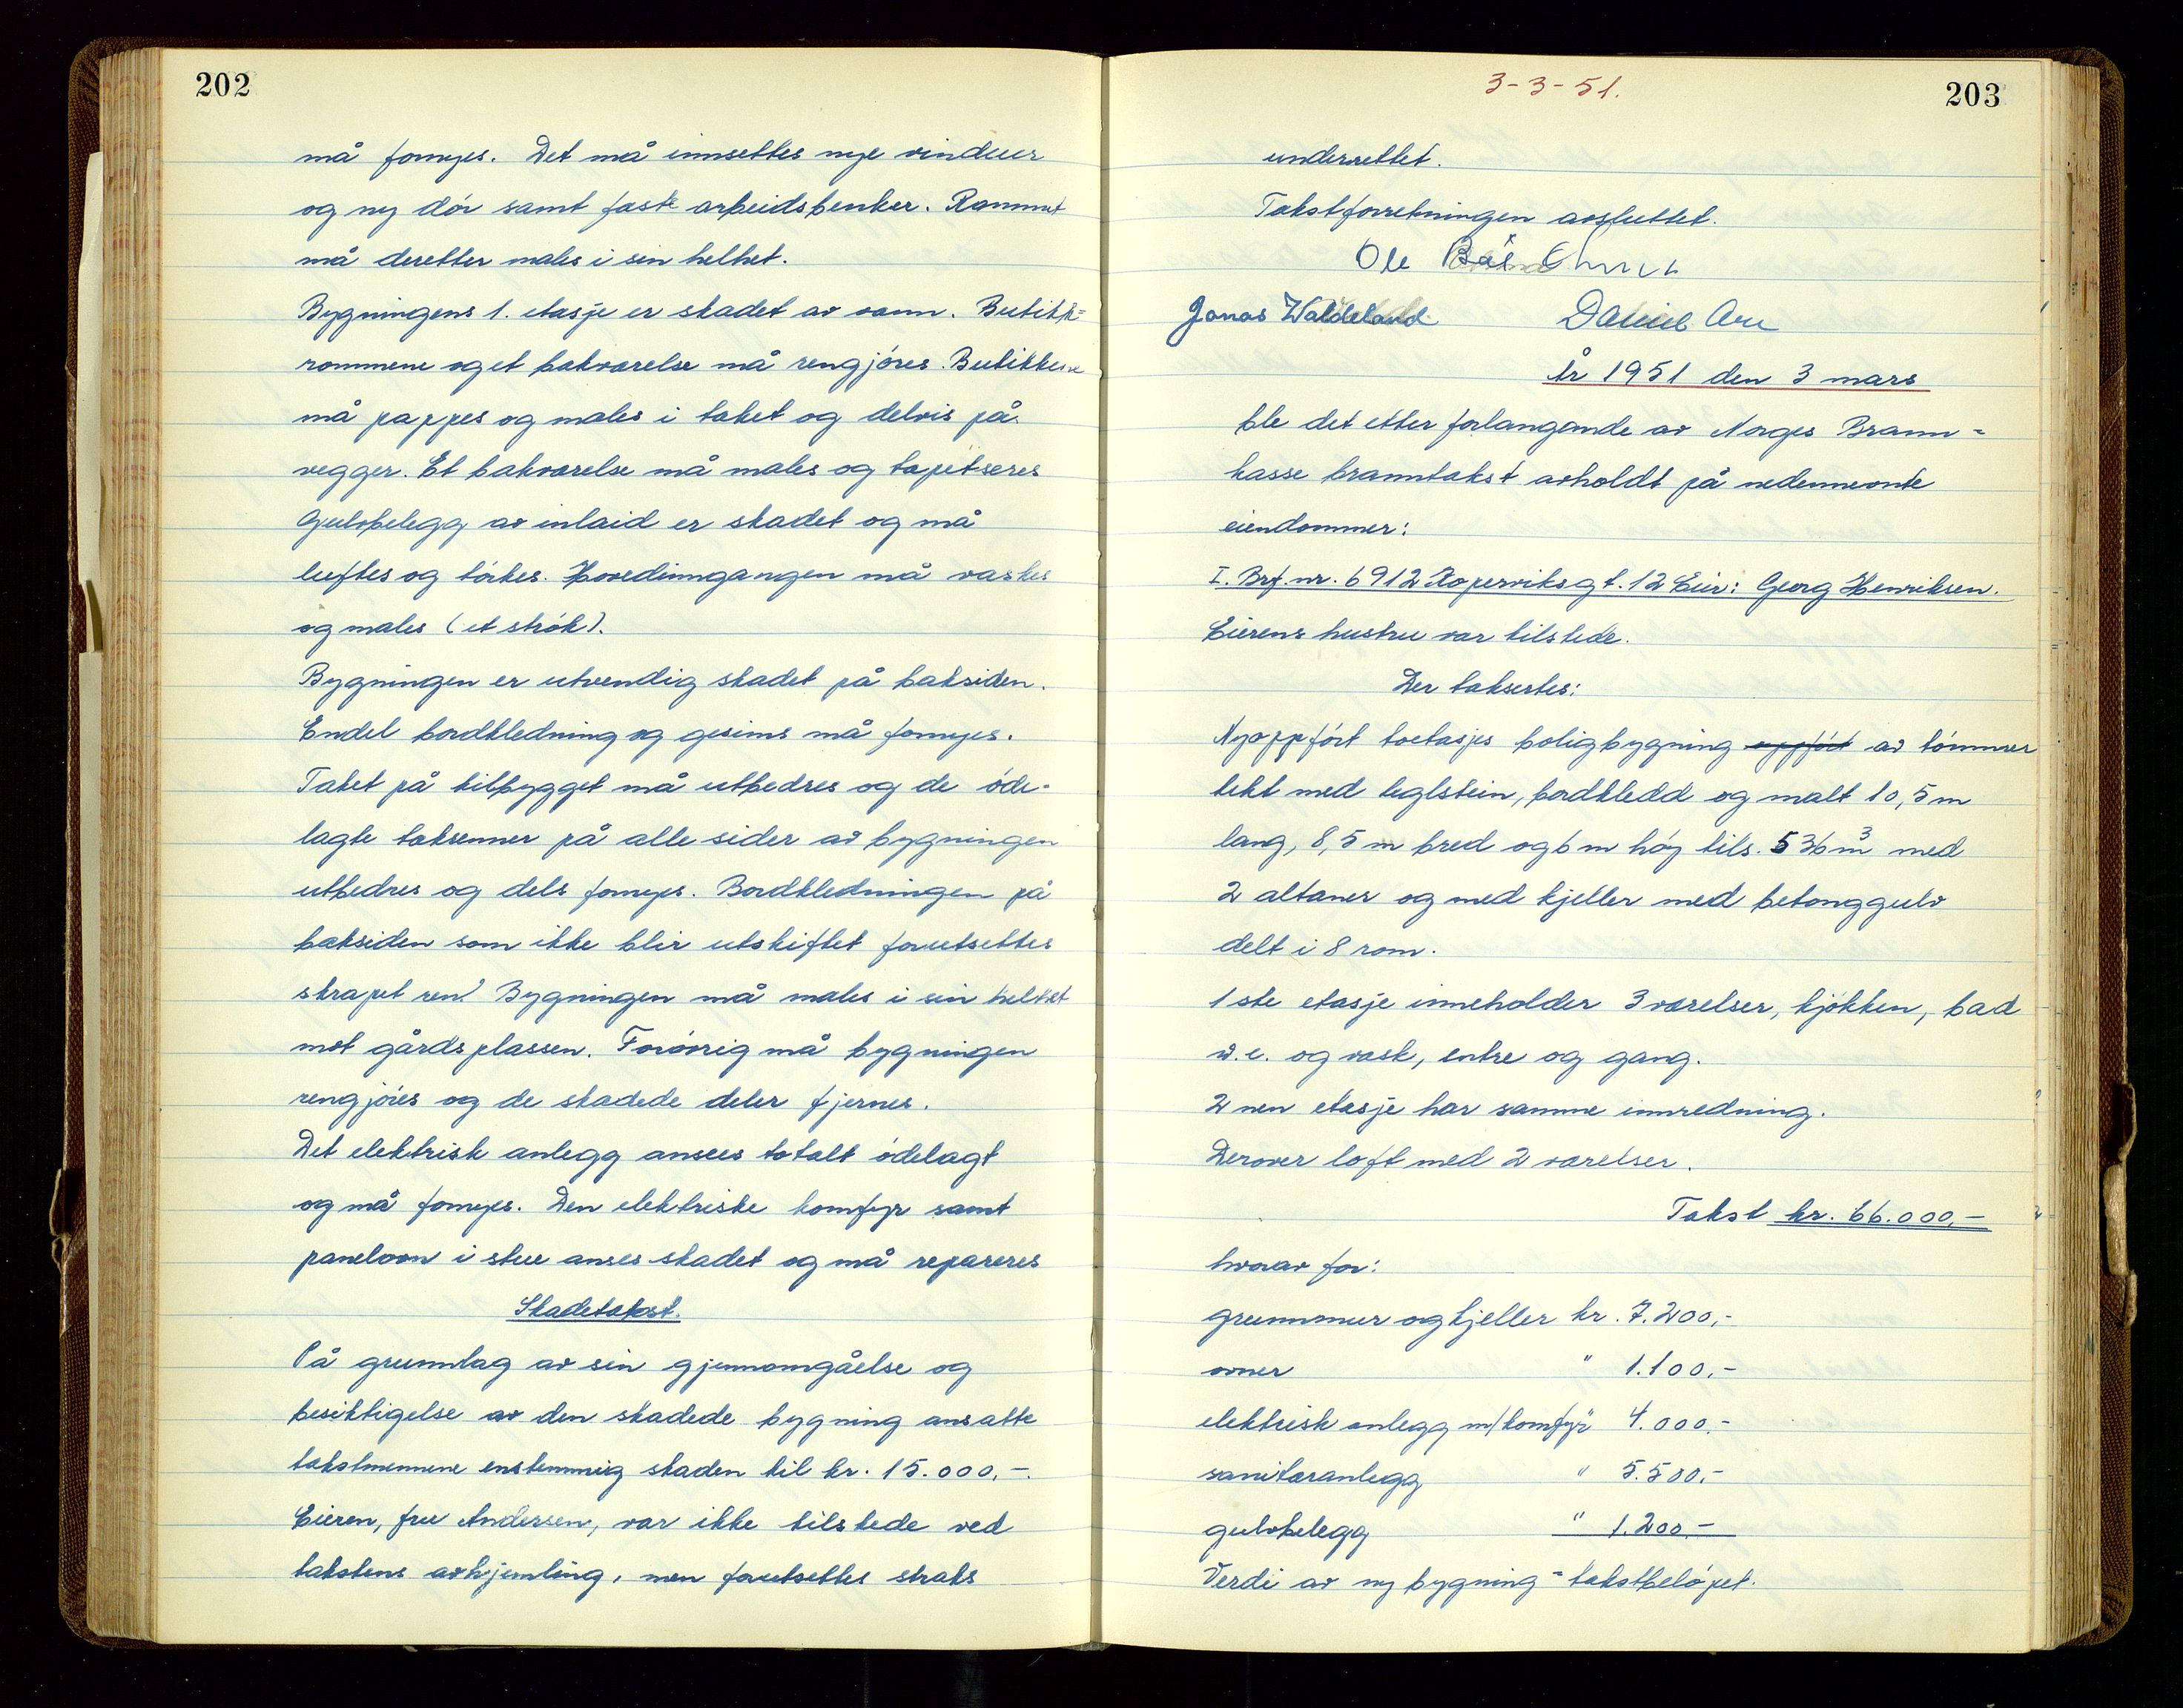 202
må fornyes. Det må innsettes nye vinduer
og ny dør samt faste arbeidsbenker. Rommet
må deretter males i sin helhet.
Bygningens 1. etasje er skadet av vann. Butikk=
rommene og et bakværelse må rengjøres. Butikkene
må pappes og males i taket og delvis på
vegger. Et bakværelse må males og tapetseres
Gulvbelegg av inlaid er skadet og må
luftes og tørkes. Hovedinngangen må vaskes
og males (et strøk).
Bygningen er utvendig skadet på baksiden.
Endel bordkledning og gesims må fornyes.
Taket på tilbygget må utbedres og de øde-
lagte takrenner på alle sider av bygningen
utbedres og dels fornyes. Bordkledningen på
baksiden som ikke blir utskiftet forutsettes
skrapet ren. Bygningen må males i sin helhet
mot gårdsplassen. Forøvrig må bygningen
rengjøres og de skadede deler fjernes.
Det elektrisk anlegg ansees totalt ødelagt
og må fornyes. Den elektriske komfyr samt
panelovn i stue anses skadet og må repareres
Skadetakst.
På grunnlag av sin gjennomgåelse og
besiktigelse av den skadede bygning ansatte
takstmennene enstemmig skaden til kr. 15.000,-.
Eieren, fru Andersen, var ikke tilstede ved
takstens avhjemling, men forutsettes straks
3-3-51.
203
underrettet.
Takstforretningen avsluttet.
Ole
Jonas Waldeland
År 1951 den 3 mars
ble det etter forlangende av Norges Brann=
kasse branntakst avholdt på nedennevnte
eiendommer:
I. Brf. nr. 6912 Koperviksgt. 12 Eier: Georg Henriksen.
Eierens hustru var tilstede.
Der taksertes:
Nyoppført toetasjes boligbygning oppført av tømmer
tekt med teglstein, bordkledd og malt 10,5 m
lang, 8,5 m bred og 6 m høy tils. 536 m³ med
2 altaner og med kjeller med betonggulv
delt i 8 rom.
1ste etasje inneholder 3 værelser, kjøkken, bad
w.c. og vask, entre og gang.
2nen etasje har samme innredning.
Derover loft med 2 værelser.
Takst kr. 66.000,-
hvorav for:
grunnmur og kjeller kr. 7.200,-
ovner " 1.100,-
elektrisk anlegg m/komfyr " 4.000,-
sanitæranlegg " 5.500,-
gulvbelegg " 1.200,-
Verdi av ny bygning = takstbeløpet.